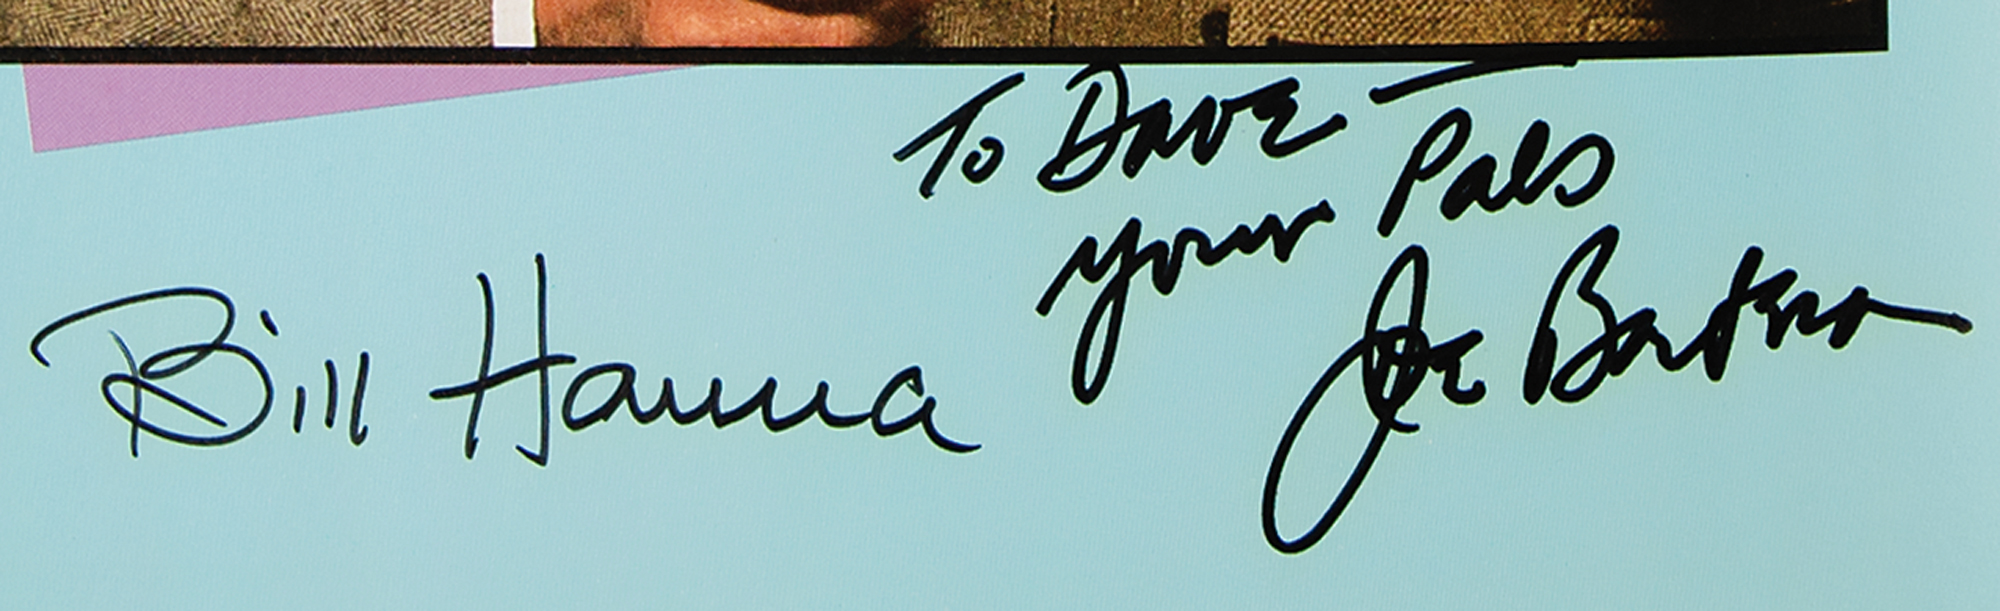 To Dave —
your Pals
Bill Hanna
Joe Barbera